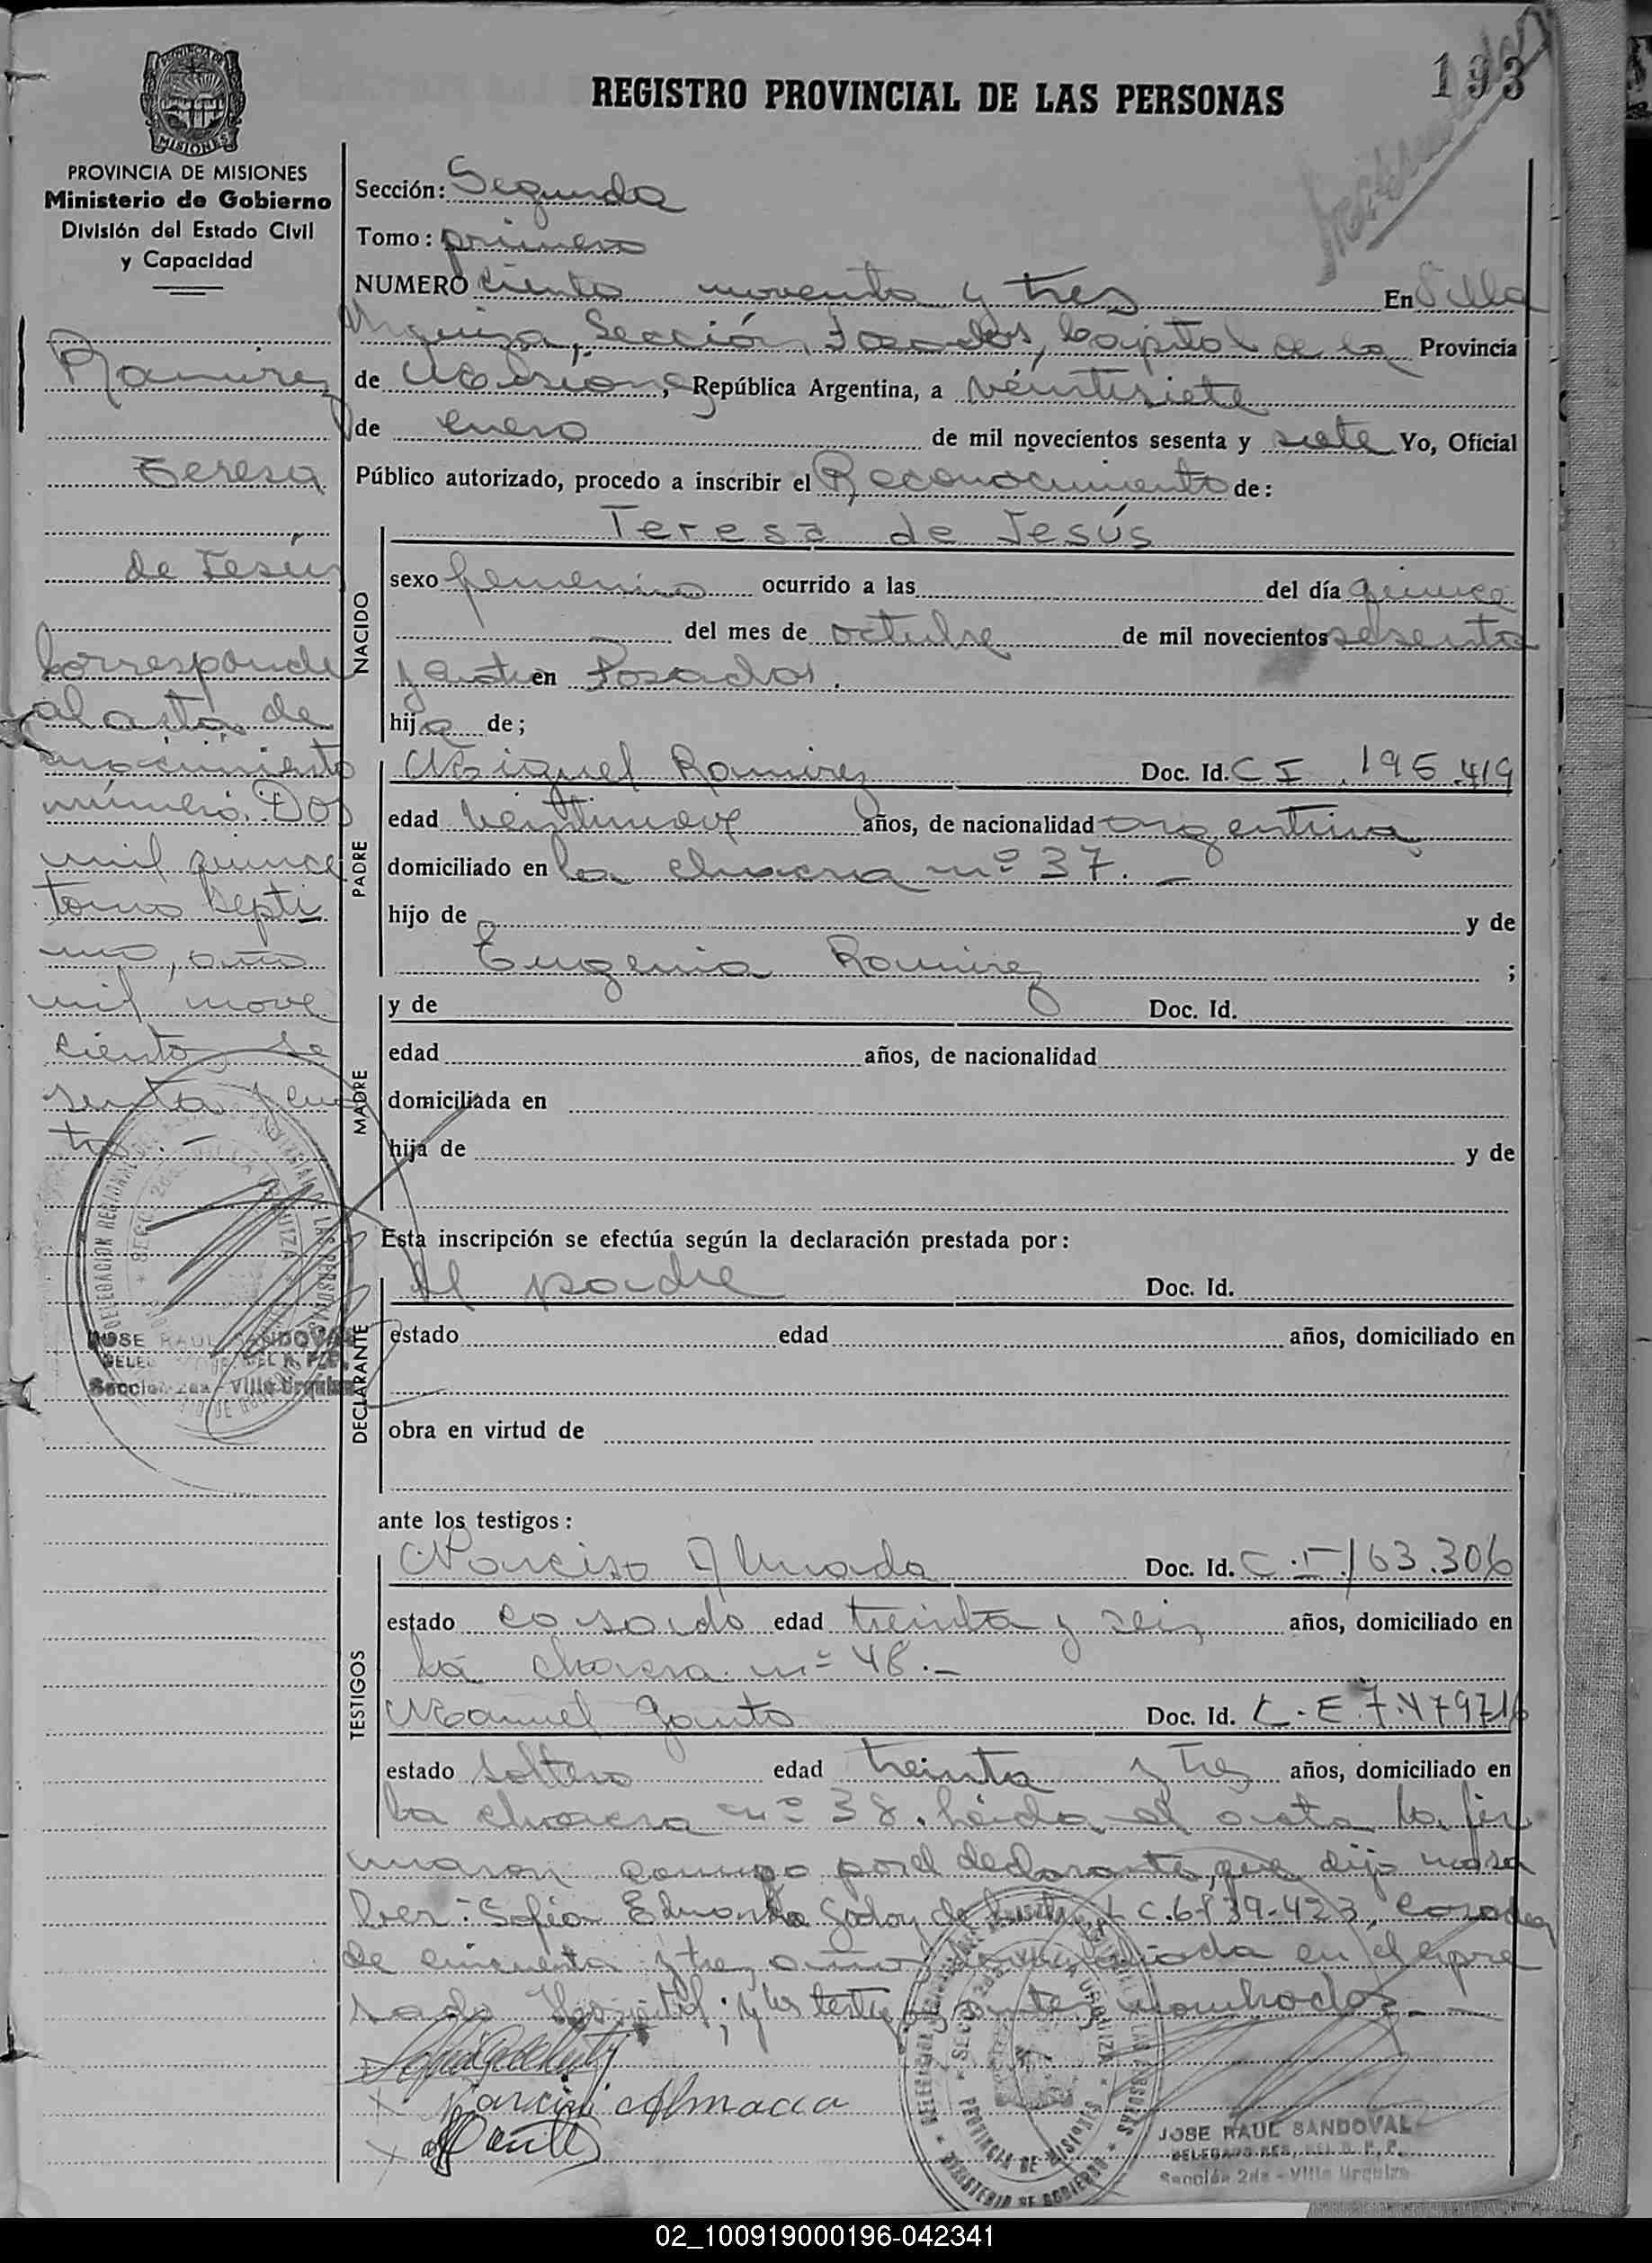 193
REGISTRO PROVINCIAL DE LAS PERSONAS
MISIONES
PROVINCIA DE MISIONES
Ministerio de Gobierno
División del Estado Civil
y Capacidad
Ramirez
Teresa
de Jesús
Corresponde
al acta de
nacimiento
número Dos
mil quince
tomo septi
mo, año
mil nove
ciento se
senta y cua
tro. -
JOSE RAUL SANDOVAL
Sección 2da - Villa Urquiza
Sección: Segunda
Tomo: primero
NUMERO ciento noventa y tres En Villa
Urquiza, Sección Posadas, Capital de la Provincia
de Misiones, República Argentina, a veintisiete
de enero de mil novecientos sesenta y siete Yo, Oficial
Público autorizado, procedo a inscribir el Reconocimiento de:
Teresa de Jesús
NACIDO
sexo femenino ocurrido a las del día quince
del mes de octubre de mil novecientos sesenta
y cuatro en Posadas.
hija de;
PADRE
Miguel Ramirez Doc. Id. C I 195.419
edad veintinueve años, de nacionalidad argentina
domiciliado en la chacra nº 37. -
hijo de y de
Eugenia Ramirez ;
MADRE
y de Doc. Id.
edad años, de nacionalidad
domiciliada en
hija de y de
Esta inscripción se efectúa según la declaración prestada por:
DECLARANTE
el padre Doc. Id.
estado edad años, domiciliado en
obra en virtud de
ante los testigos:
TESTIGOS
Narciso Almada Doc. Id. C.I. 163.306
estado casado edad treinta y seis años, domiciliado en
la chacra nº 48. -
Manuel Gauto Doc. Id.
estado soltero edad treinta y tres años, domiciliado en
la chacra nº 38. Leída el acta la fir
maron conmigo por el declarante, que dijo no sa
ber: Sofia Godoy de casada
de cincuenta y tres años domiciliada en el expre
sado Hospital; y los testigos antes nombrados. -
Narciso Almada
JOSE RAUL SANDOVAL
DELEGADO REG. DEL R. P. P.
Sección 2da - Villa Urquiza
02_100919000196-042341